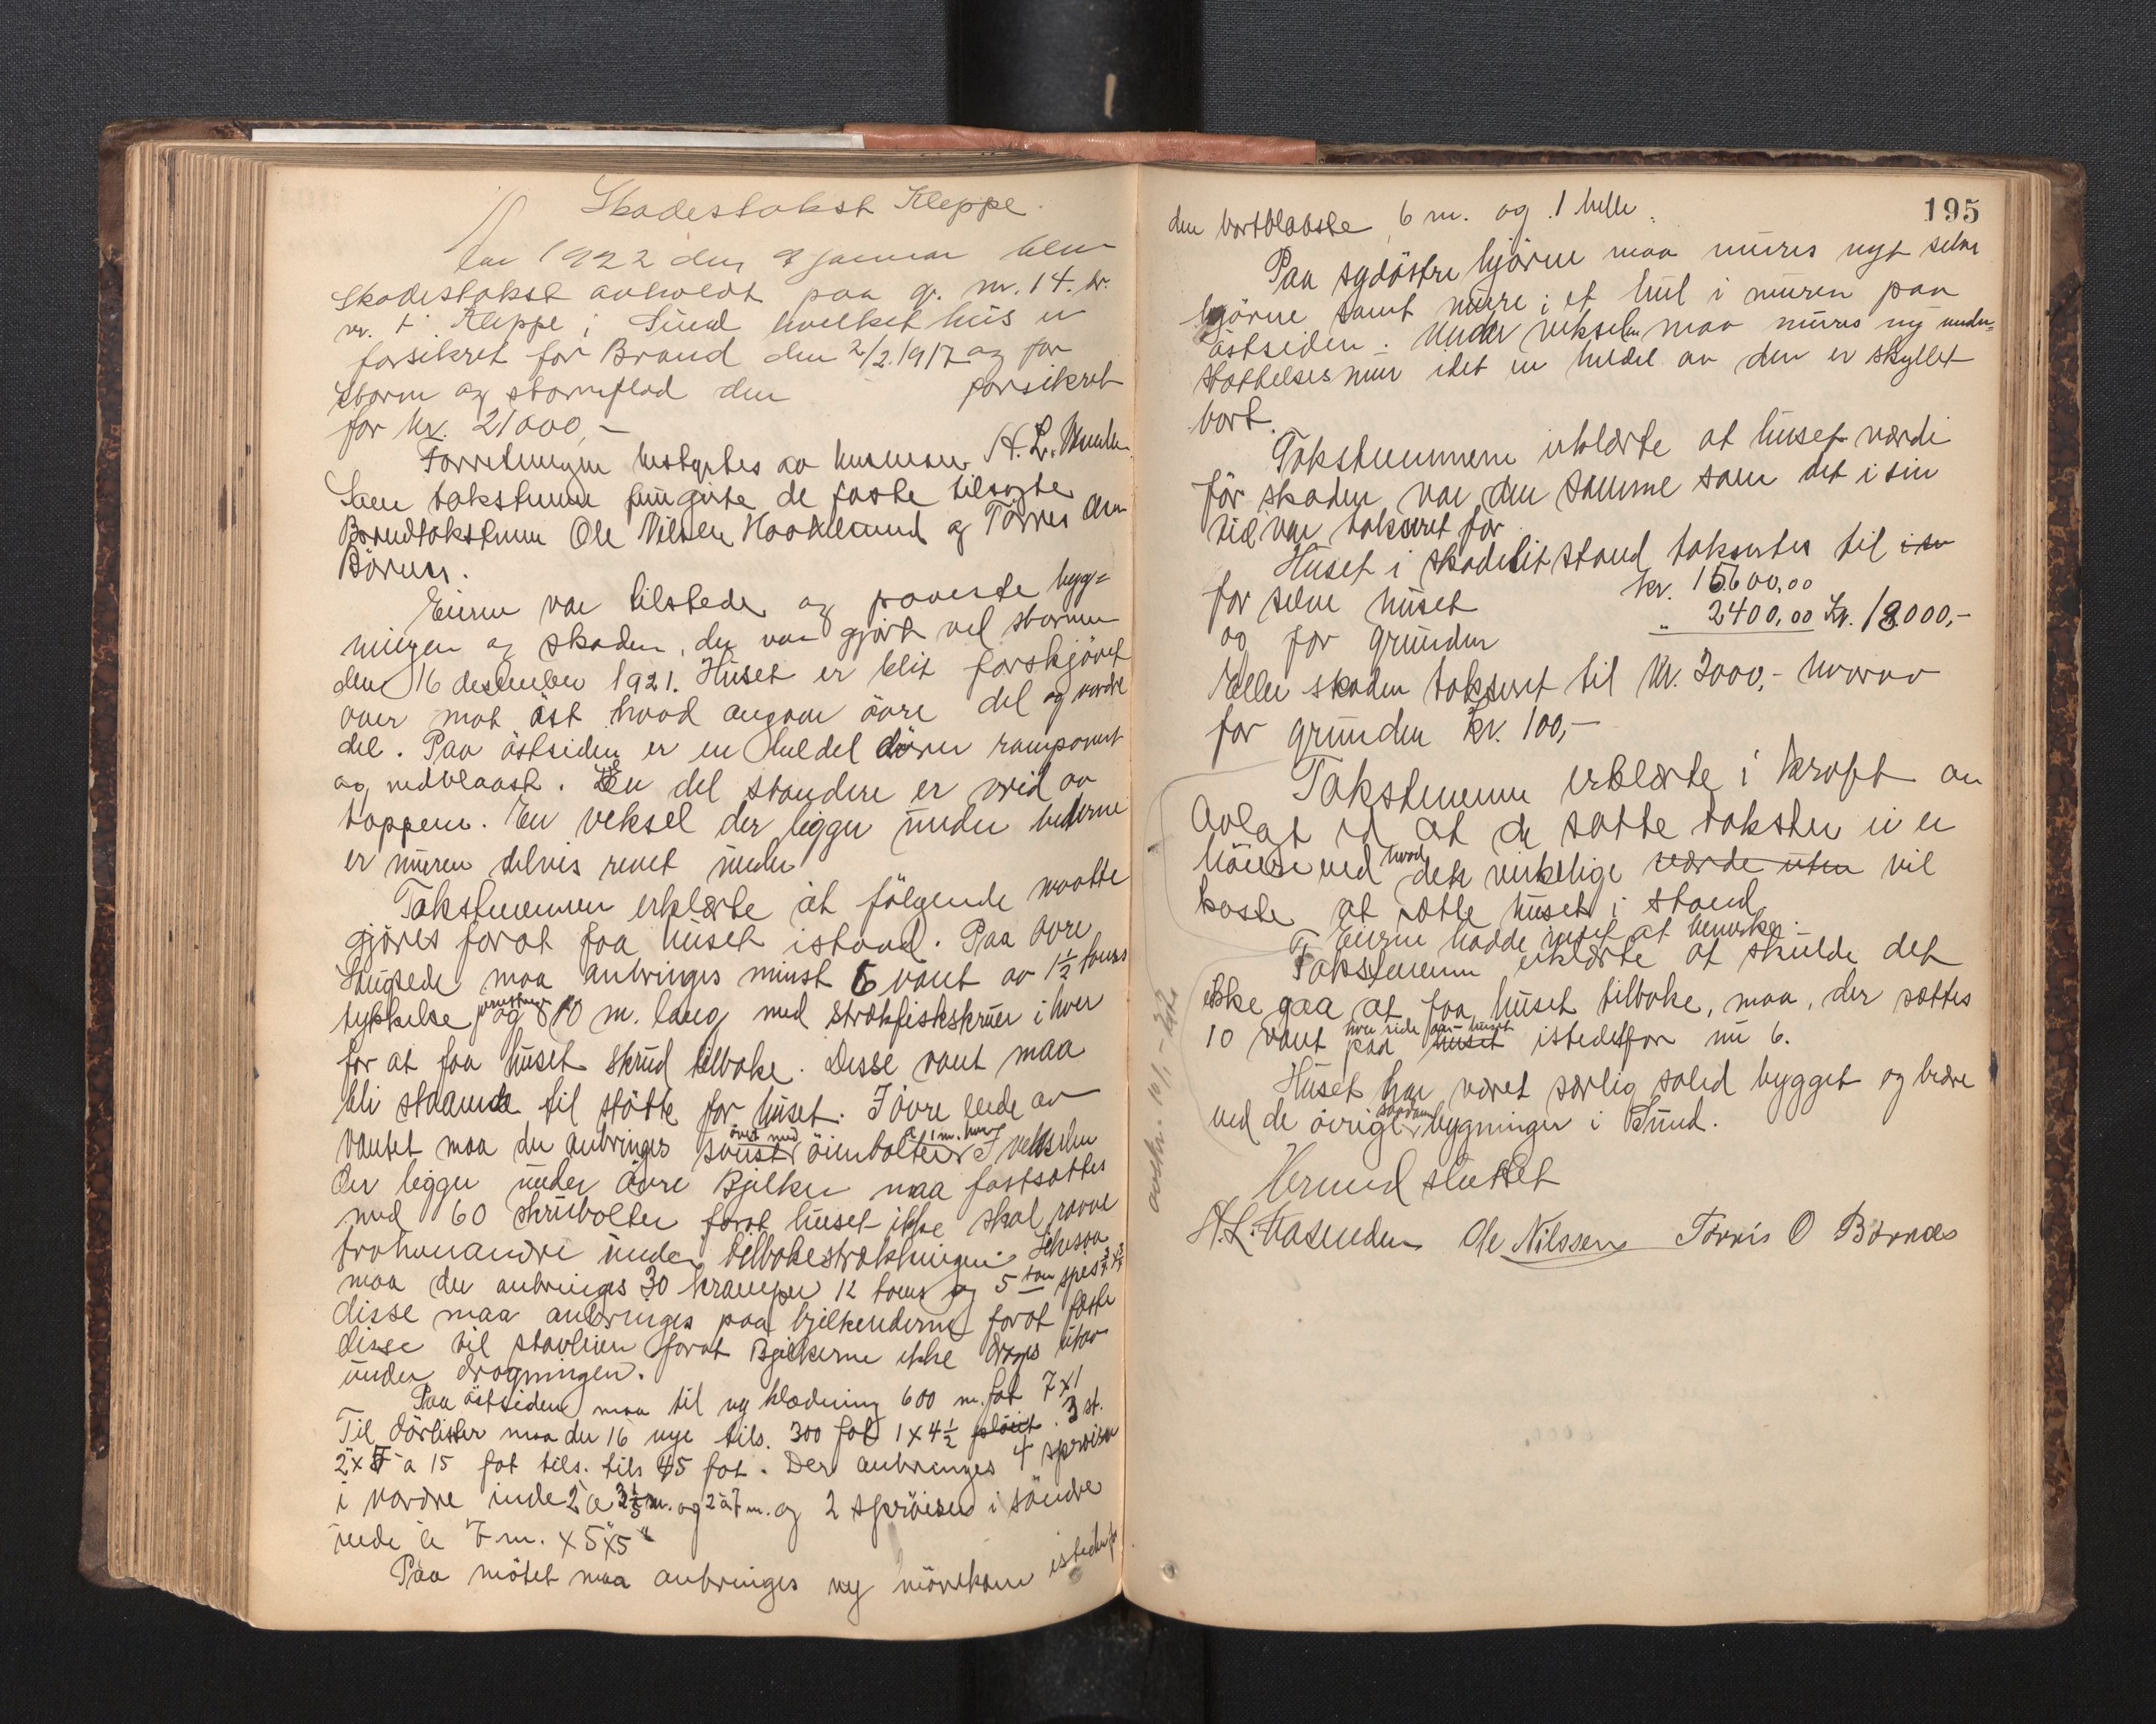 Skadestakst Kleppe.
Aar 1922 den 9 januar blev
skadestakst avholdt paa g. nr. 14. br.
nr. 1 Kleppe i Sund hvilket hus er
forsikret for Brand den 2/2.1917 og for
storm og stormflod den forsikret
for kr. 21000,-
Forretningen bestyrtes av lensmann H. L.
Som takstmenn fungerte de faste tilsagte
Brandtakstmenn Ole Nilsen Haakelsund og Tørres
Børnes.
Eieren var tilstede og paaviste byg=
ningen og skaden, der var gjort ved stormen
den 16 desember 1921. Huset er blit forskjøvet
over mot øst hvad angaar øvre del og nordre
del. Paa østsiden er en heldel dører ramponert
og nedblaast. En del standere er vrid av
tappene. En veksel der ligger under
er muren delvis revet under
Takstmennen erklærte at følgende maatte
gjøres forat faa huset istand. Paa øvre
maa anbringes minst 6 vant av 1½ toms
tykkelse og 10 m. lang med strækfiskskruer i hver
for at faa huset skrud tilbake. Disse vant maa
bli staaende til støtte for huset. I øvre ende av
vantet maa der anbringes øiebolter à 1 m. hver I vekselen
der ligger under øvre Bjelker maa fastsættes
med 60 skrubolter forat huset ikke skal ravne
frahverandre under tilbakestrækningen. Likesaa
maa der anbringes 30 kramper 12 toms og 5 tom spes ¾ x ¾
disse maa anbringes paa bjelkenderne forat fæste
disse til stavleien forat Bjelkerne ikke drages utav
under dragningen.
Paa østsiden maa til ny klædning 600 m. fot 7x1
Til dørlister maa der 16 nye tils. 300 fot 1x4½ pløiet. 3 st.
2"x5" a 15 fot tils. tils 45 fot. Der anbringes 4 sprøiser
i nordre inde 2 a 3½ m. og 2 à 7 m. og 2 sprøiser i søndre
inde à 7 m. x 5"x5"
Paa møtet maa anbringes ny mønekam istedenfor
195
den bortblaaste 6 m. og 1 helle.
Paa sydøstre hjørne maa mures nyt selve
hjørne samt mure i et hul i muren paa
østsiden. Under vekselen maa mures ny under=
støttelsesmur idet en heldel av den er skyllet
bort.
Takstmennene erklærte at husets værdi
før skaden var den samme som det i sin
tid var taksert for
Huset i skadelitstand taksertes til
for selve huset kr. 15600,00
og for grunden " 2400,00 Kr. 18.000,-
Eller skaden taksert til kr. 3000,- hvorav
for grunden kr. 100,-
Takstmennene erklærte i kraft av
avlagt ed at de satte taksten ei er
høiere end hvad det virkelige værde uten vil
koste at sætte huset i stand
Eieren hadde intet at bemerke.
Takstmennene erklærte at skulde det
ikke gaa at faa huset tilbake, maa der sættes
10 vant paa hver side av huset huset istedetfor nu 6.
Huset har været særlig solid bygget og bedre
end de øvrige saadanne bygninger i Sund.
Hermed sluttet
H. L. Ole Nilssen Tørris O Børnes
avskr. 10/1.-22